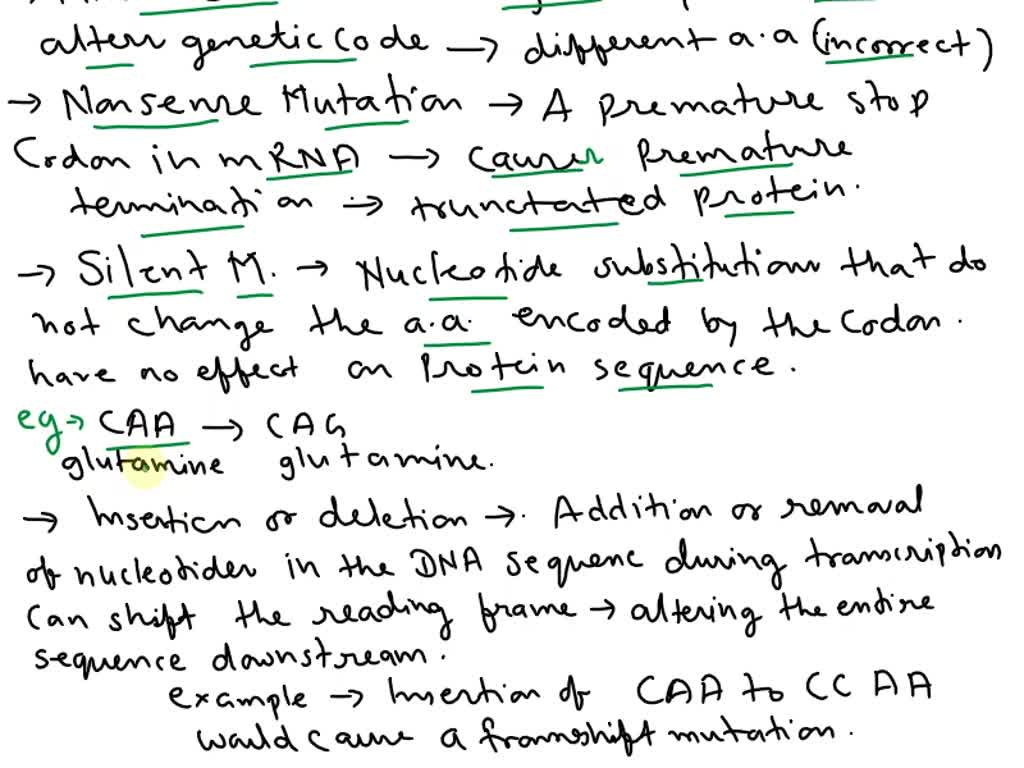 altern genetic code → different a.a (incorrect)
→ Nonsense Mutation → A premature stop
Codon in mRNA → causes premature
termination → trunctated protein.
→ Silent M. → Nucleotide substitutions that do
not change the a.a. encoded by the codon.
have no effect on Protein sequence.
eg→ CAA → CAG
glutamine glutamine.
→ Insertion or deletion →. Addition or removal
of nucleotides in the DNA sequenc during transcription
can shift the reading frame → altering the entire
sequence downstream.
example → Insertion of CAA to CCAA
would cause a frameshift mutation.